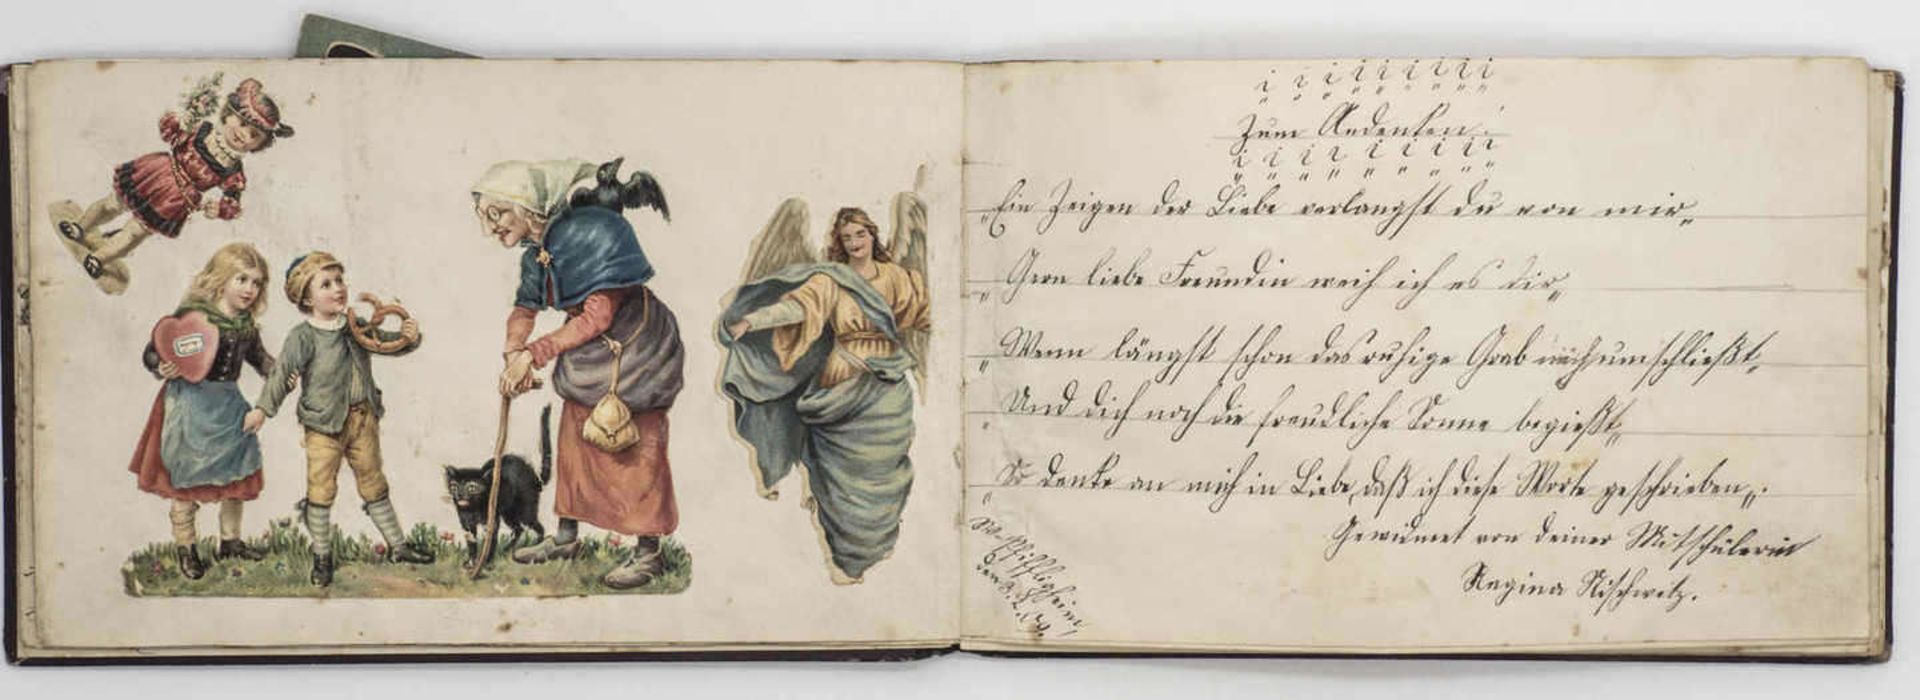 Zum Andenken!
„Ein Zeigen der Liebe verlangst du von mir„
„Gern liebe Freundin weih ich es dir„
„Wenn längst schon das ruhige Grab mich umschließt„
„Und dich noch die freudliche Sonne begießt„
„So denke an mich in Liebe, daß ich diese Worte geschrieben„.
Gewidmet von deiner Mitschülerin
Regina Nischwitz.
W.-Pfiffligheim,
den 3. 2.